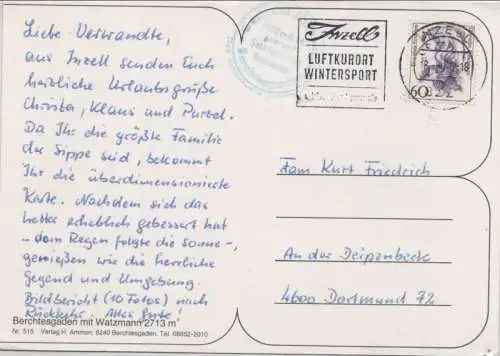 Liebe Verwandte,
aus Inzell senden Euch
herzliche Urlaubsgrüße
Christa, Klaus und
Da Ihr die größte Familie
der Sippe seid, bekommt
Ihr die überdimensionierte
Karte. Nachdem sich das
Wetter erheblich gebessert hat
- dem Regen folgte die Sonne -,
genießen wir die herrliche
Gegend und Umgebung.
Bildbericht (10 Fotos) nach
Rückkehr. Alles Gute!
Berchtesgaden mit Watzmann 2713 m
Nr. 515 Verlag H. Ammon, 8240 Berchtesgaden, Tel. 08652-2010
Inzell
LUFTKURORT
WINTERSPORT
INZELL
60
Fam Kurt Friedrich
An der Deipenbeck
4600 Dortmund 72